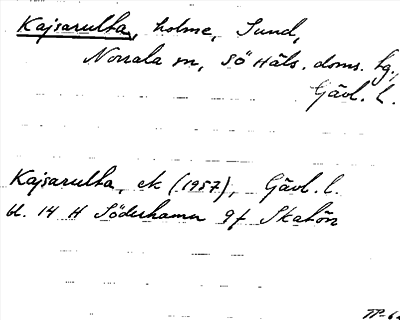 Kajsarulta, holme, Sund,
Norrala sn, SÖ Häls. doms. tg.,
Gävl. l.
Kajsarulta, ek (1957), Gävl. l.
bl. 14 H Söderhamn 9f Skatön